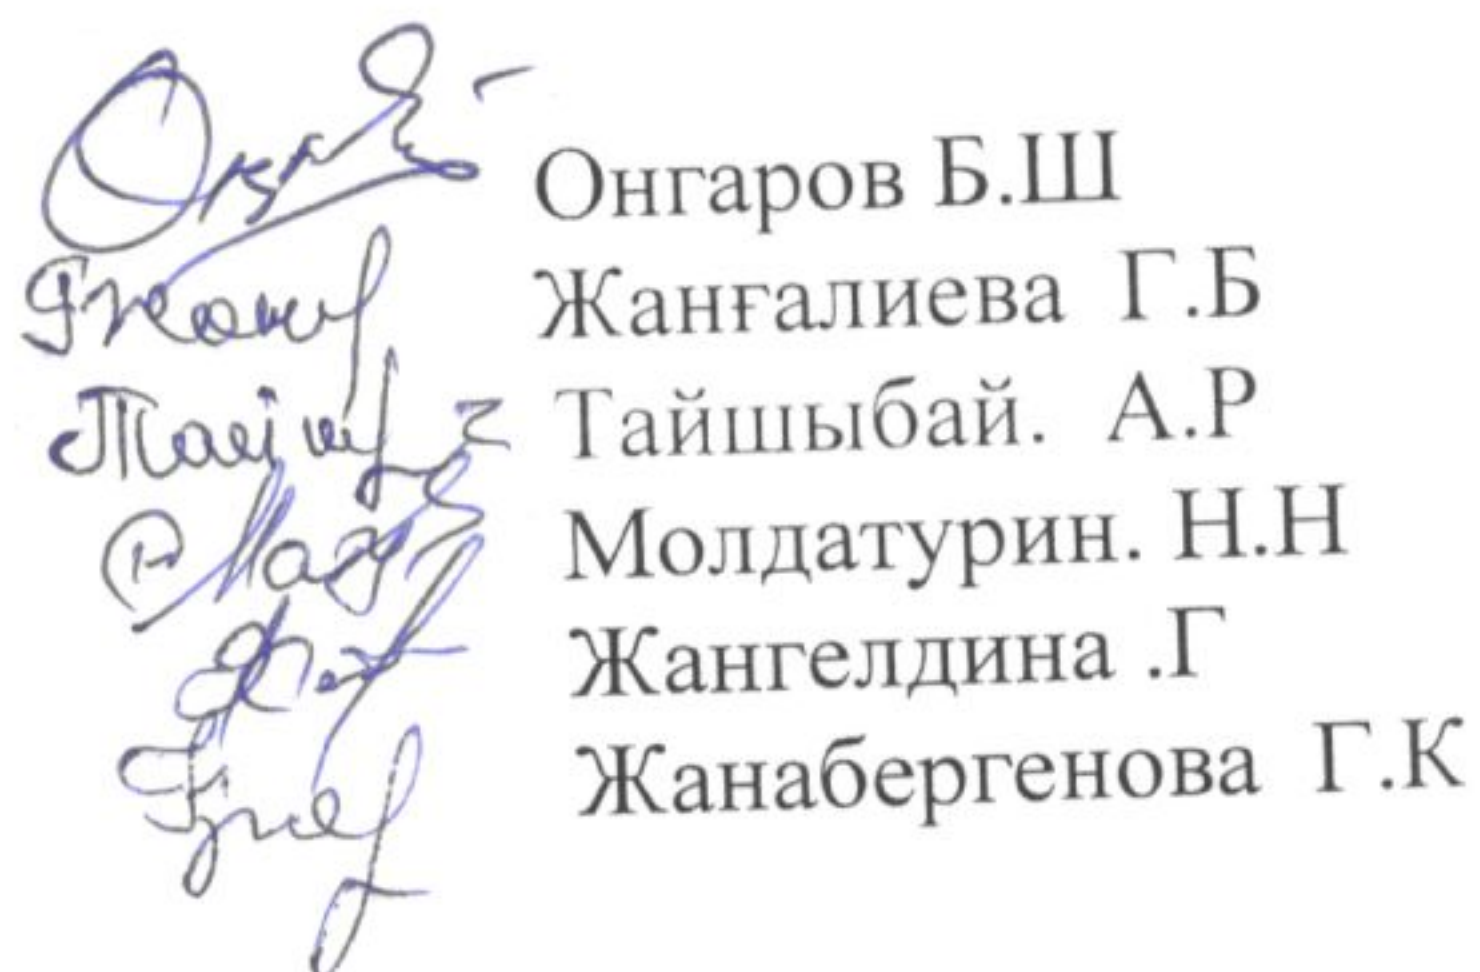 Онгаров Б.Ш
Жанғалиева Г.Б
Тайшыбай. А.Р
Молдатурин. Н.Н
Жангелдина .Г
Жанабергенова Г.К